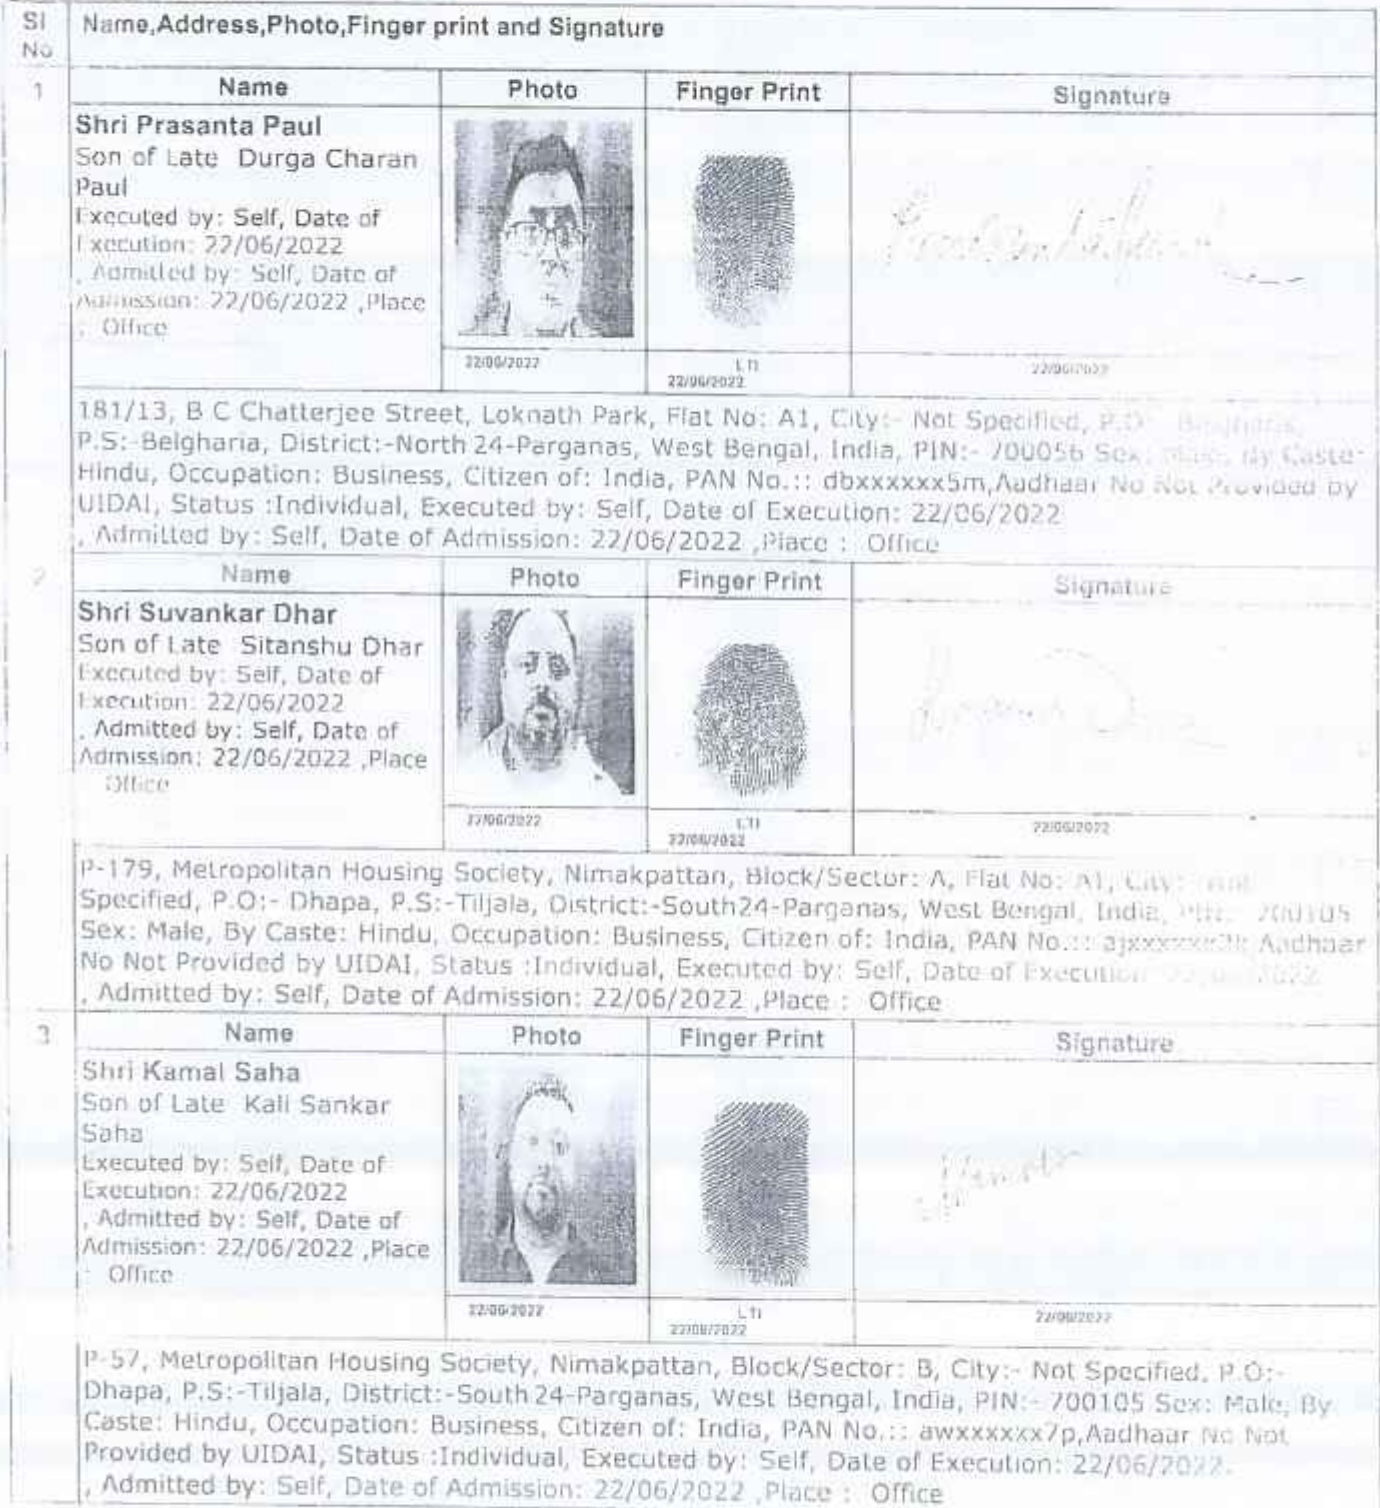 Sl
No
Name,Address,Photo,Finger print and Signature
1
Name
Photo
Finger Print
Signature
Shri Prasanta Paul
Son of Late Durga Charan
Paul
Executed by: Self, Date of
Execution: 22/06/2022
, Admitted by: Self, Date of
Admission: 22/06/2022 ,Place
: Office
22/06/2022
LTI
22/06/2022
22/06/2022
181/13, B C Chatterjee Street, Loknath Park, Flat No: A1, City:- Not Specified, P.O:- Belgharia,
P.S:-Belgharia, District:-North 24-Parganas, West Bengal, India, PIN:- 700056 Sex: Male, By Caste:
Hindu, Occupation: Business, Citizen of: India, PAN No.:: dbxxxxxx5m,Aadhaar No Not Provided by
UIDAI, Status :Individual, Executed by: Self, Date of Execution: 22/06/2022
, Admitted by: Self, Date of Admission: 22/06/2022 ,Place : Office
2
Name
Photo
Finger Print
Signature
Shri Suvankar Dhar
Son of Late Sitanshu Dhar
Executed by: Self, Date of
Execution: 22/06/2022
, Admitted by: Self, Date of
Admission: 22/06/2022 ,Place
Office
22/06/2022
LTI
22/06/2022
22/06/2022
P-179, Metropolitan Housing Society, Nimakpattan, Block/Sector: A, Flat No: A1, City:- Not
Specified, P.O:- Dhapa, P.S:-Tiljala, District:-South24-Parganas, West Bengal, India, PIN:- 700105
Sex: Male, By Caste: Hindu, Occupation: Business, Citizen of: India, PAN No.:: Aadhaar
No Not Provided by UIDAI, Status :Individual, Executed by: Self, Date of Execution: 22/06/2022
, Admitted by: Self, Date of Admission: 22/06/2022 ,Place : Office
3
Name
Photo
Finger Print
Signature
Shri Kamal Saha
Son of Late Kali Sankar
Saha
Executed by: Self, Date of
Execution: 22/06/2022
, Admitted by: Self, Date of
Admission: 22/06/2022 ,Place
: Office
22/06/2022
LTI
22/06/2022
22/06/2022
P-57, Metropolitan Housing Society, Nimakpattan, Block/Sector: B, City:- Not Specified, P.O:-
Dhapa, P.S:-Tiljala, District:-South 24-Parganas, West Bengal, India, PIN:- 700105 Sex: Male, By
Caste: Hindu, Occupation: Business, Citizen of: India, PAN No.:: awxxxxxx7p,Aadhaar No Not
Provided by UIDAI, Status :Individual, Executed by: Self, Date of Execution: 22/06/2022
, Admitted by: Self, Date of Admission: 22/06/2022 ,Place : Office